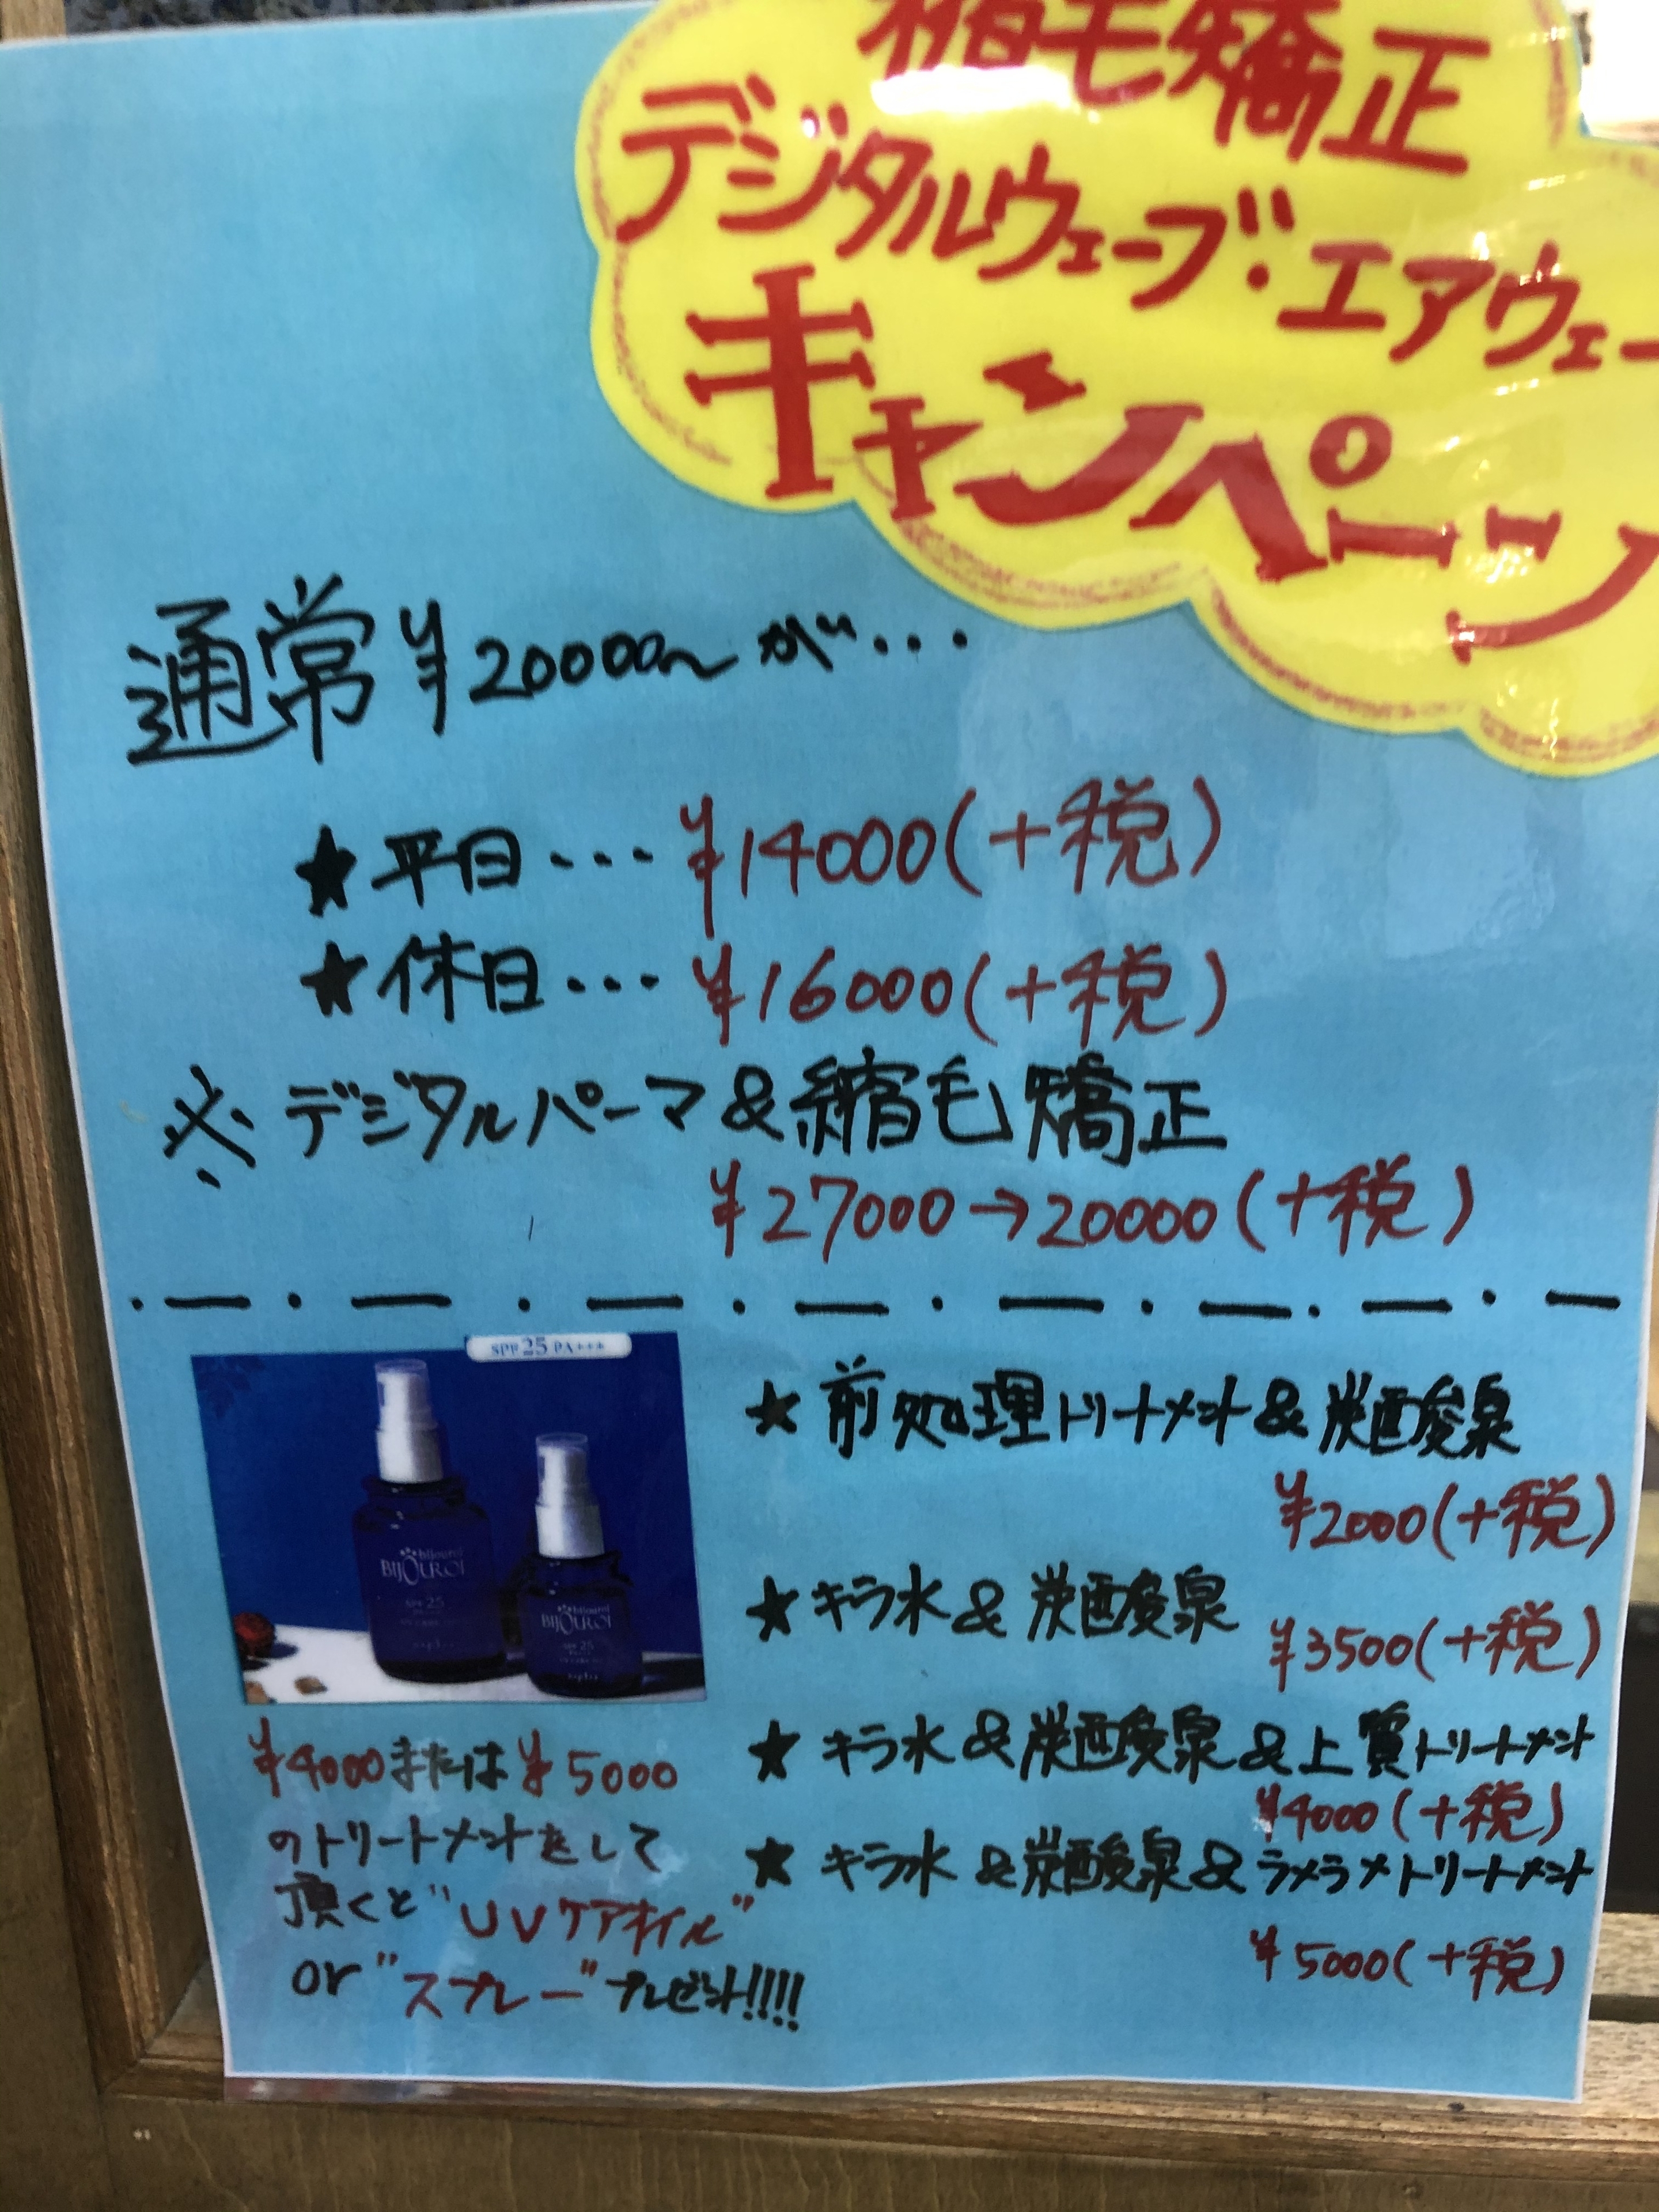 縮毛矯正
デジタルウェーブ・エアウェー
キャンペーン
通常¥20000〜が・・・
★平日・・・¥14000(+税)
★休日・・・¥16000(+税)
※デジタルパーマ&縮毛矯正
¥27000→20000(+税)
SPF25 PA+++
bijouroi
BIJOUROI
SPF 25
napla
bijouroi
BIJOUROI
SPF 25
napla
¥4000または¥5000
のトリートメントをして
頂くと"UVケアオイル"
or"スプレー"プレゼント!!!!
★前処理トリートメント&炭酸泉
¥2000(+税)
★キラ水&炭酸泉
¥3500(+税)
★キラ水&炭酸泉&上質トリートメント
¥4000(+税)
★キラ水&炭酸泉&ラメラメトリートメント
¥5000(+税)